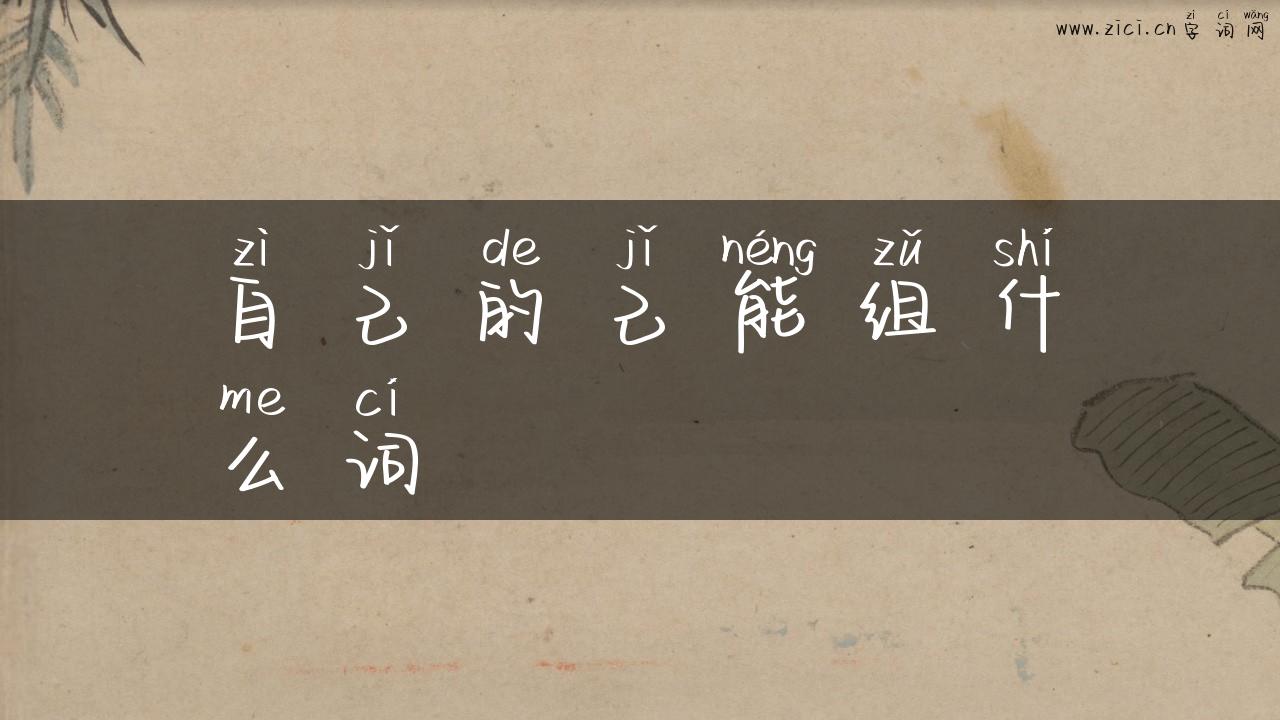 zì cí wǎng
www.zici.cn 字 词 网
zì jǐ de jǐ néng zǔ shí
自 己 的 己 能 组 什
me cí
么 词